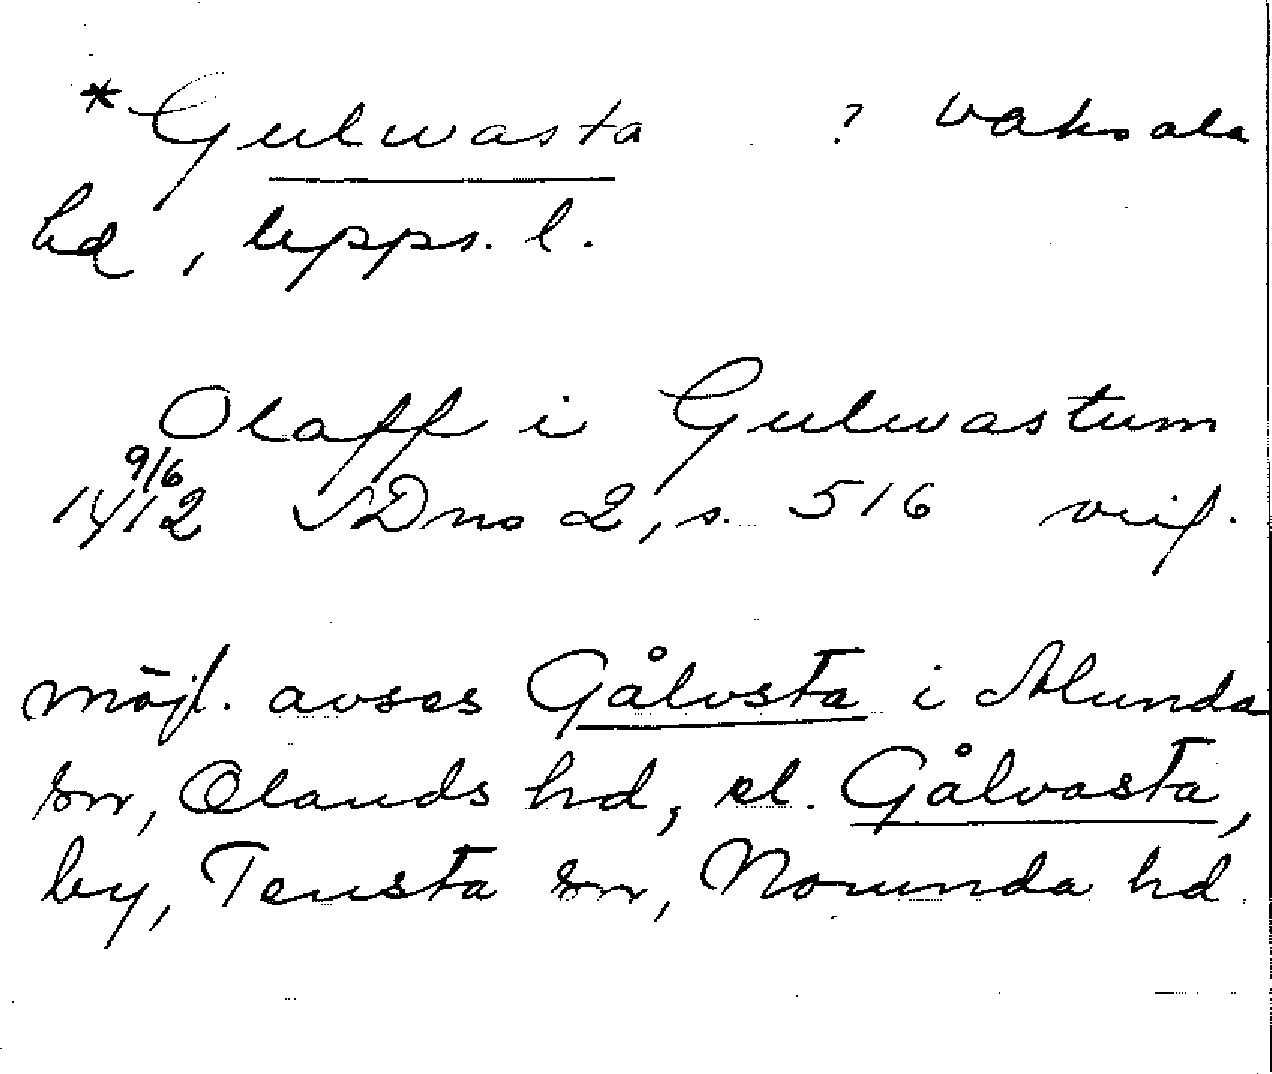 *Gulwasta ? Vaksala
hd, Upps. l.
Olaff i Gulwastum
9/6
1412 SDns 2, s. 516 
möjl. avses Gålvsta i Alunda
sn, Olands hd, el. Gålvasta,
by, Tensta sn, Norunda hd.